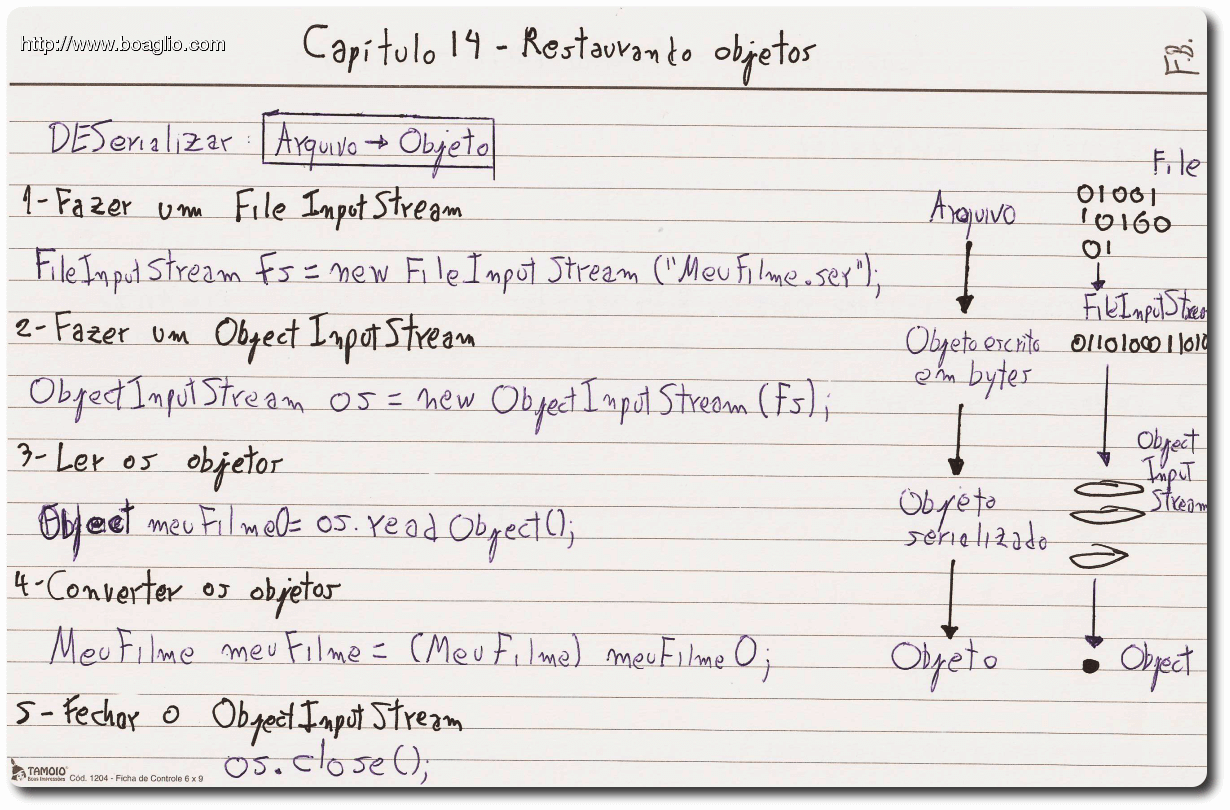 http://www.boaglio.com
Capítulo 14 - Restaurando objetos
F.B.
DESerializar: Arquivo → Objeto
1-Fazer um File InputStream
FileInputStream fs = new FileInputStream ("MeuFilme.ser");
2-Fazer um ObjectInputStream
ObjectInputStream os = new ObjectInputStream (fs);
3-Ler os objetos
Object meuFilmeO= os.readObject();
4-Converter os objetos
MeuFilme meuFilme = (MeuFilme) meuFilmeO;
5-Fechar o ObjectInputStream
os.close();
Arquivo
Objeto escrito
em bytes
Objeto
serializado
Objeto
File
01001
10100
01
FileInputStrea
0110100011010
Object
Input
Stream
Object
TAMOIO
Boas Impressões
Cód. 1204 - Ficha de Controle 6 x 9